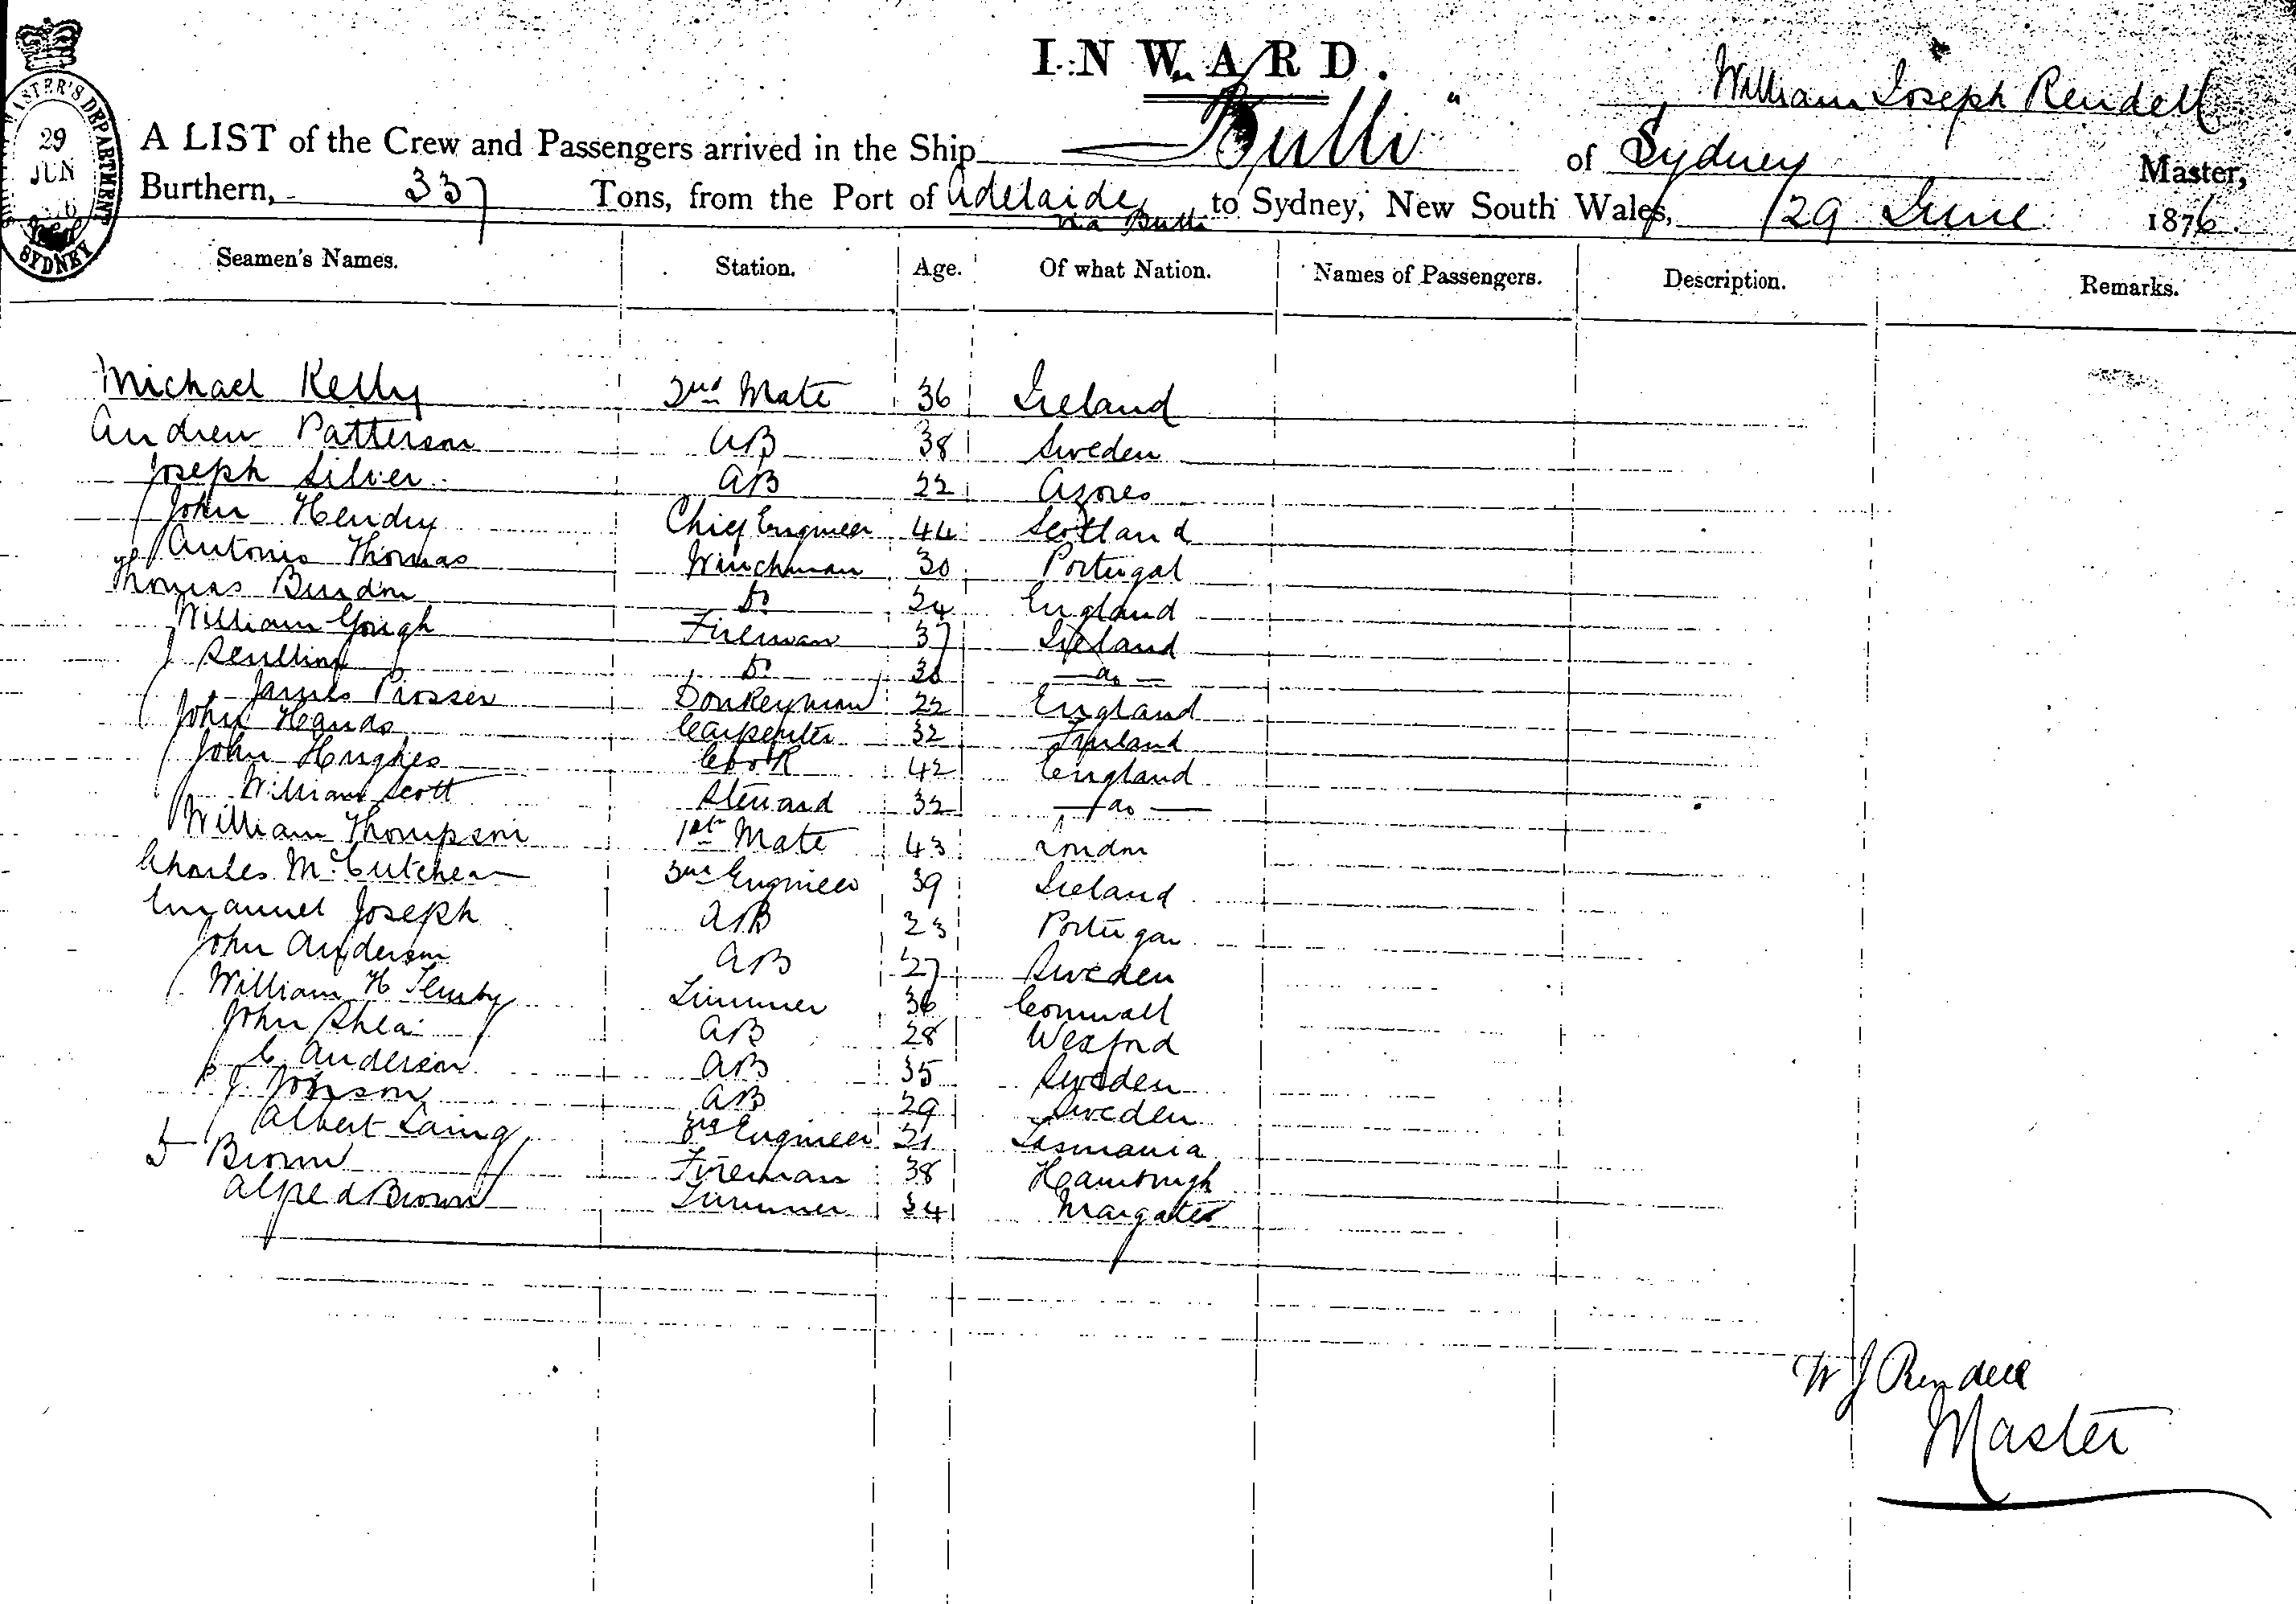 INWARD.
William Joseph Rendell
A LIST of the Crew and Passengers arrived in the Ship "Bulli" of Sydney Master,
Burthern, 337 Tons, from the Port of Adelaide via Bulli to Sydney, New South Wales, 29 June 1876
29
JUN
SYDNEY
Seamen's Names. Station. Age. Of what Nation. Names of Passengers. Description. Remarks.
Michael Kelly 2nd Mate 36 Ireland
Andrew Patterson AB 38 Sweden
Joseph Silver AB 22 Azores
John Hendry Chief Engineer 44 Scotland
Antonio Thomas Winchman 30 Portugal
Thomas Do 24 England
William Gough Fireman 37 Ireland
Do do
James Prosser Donkeyman 22 England
John Hands Carpenter 32 Finland
John Hughes Cook 42 England
William Scott Steward 32 do
William Thompson 1st Mate 43 London
Charles McCutchean 2nd Engineer 39 Ireland
Emanuel Joseph AB 23 Portugal
John Anderson AB 27 Sweden
William H Trimmer 36 Cornwall
John Shea AB 28 Wexford
C. Anderson AB 35 Sweden
P J. Jonson AB 29 Sweden
Albert Laing 3rd Engineer 21 Tasmania
Brown Fireman 38 Hamburgh
Alfred Brown Trimmer 34 Margate
W J Rendell
Master